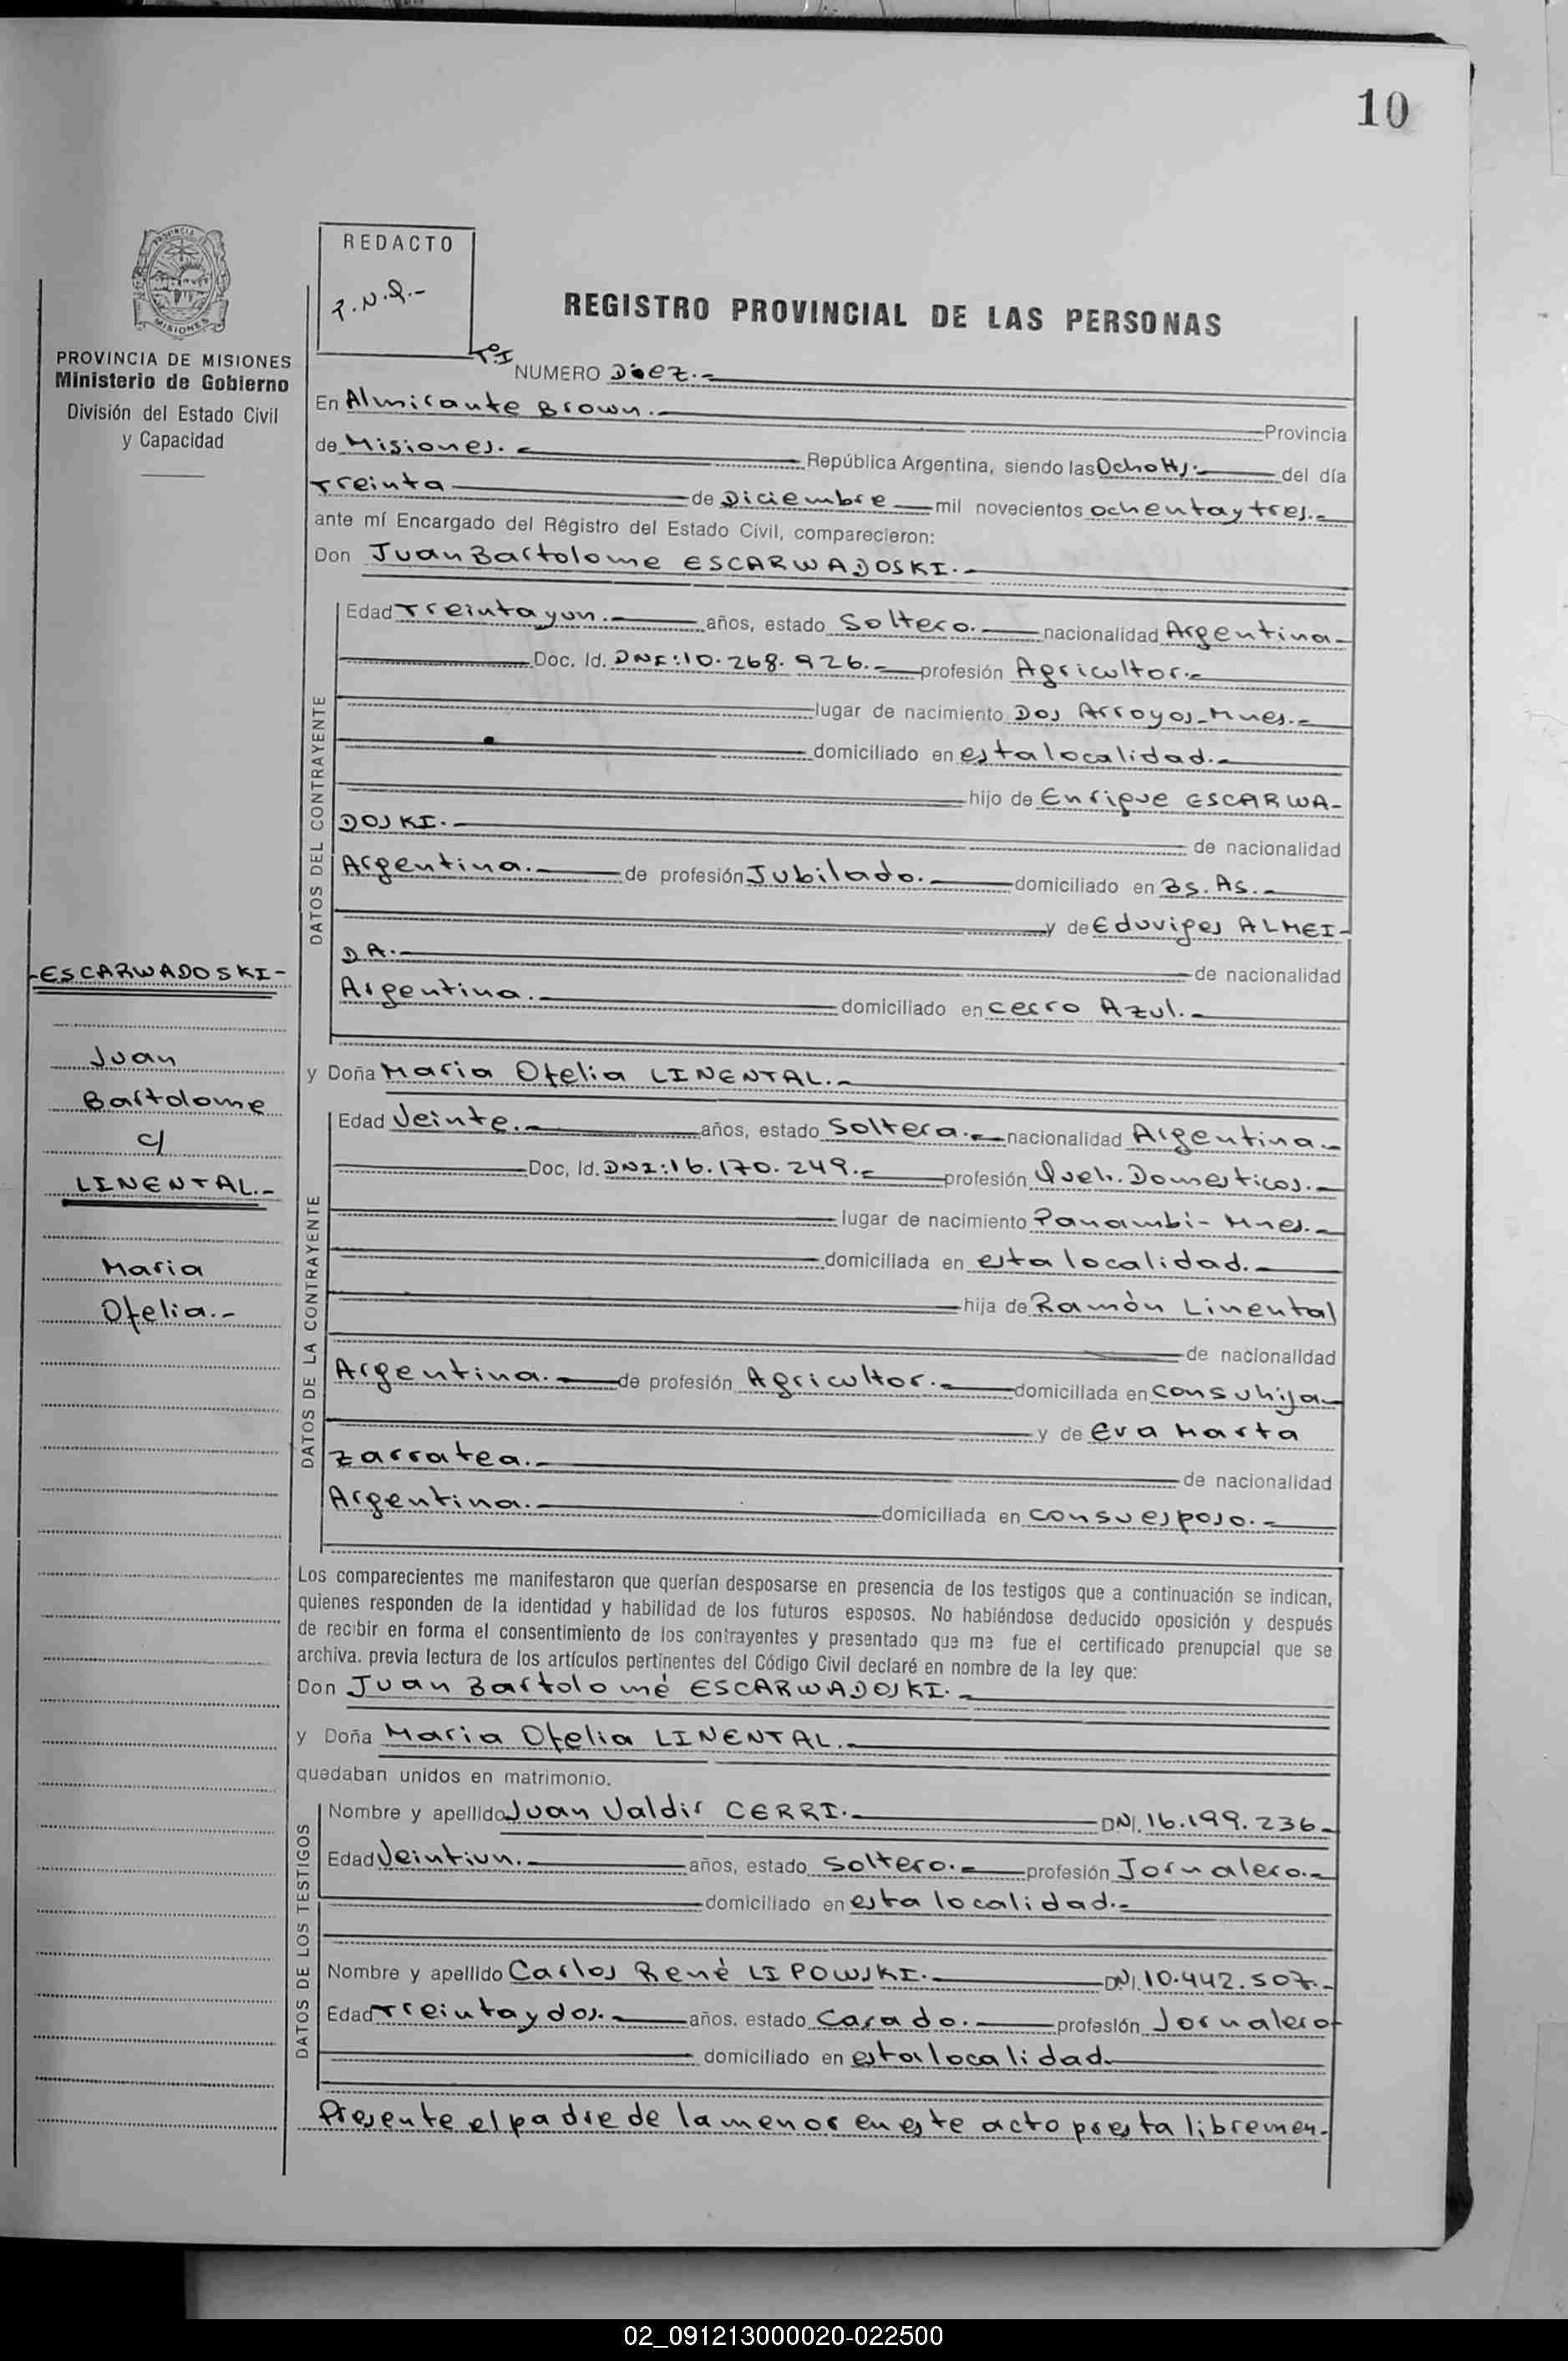 10
PROVINCIA
MISIONES
PROVINCIA DE MISIONES
Ministerio de Gobierno
División del Estado Civil
y Capacidad
-ESCARWADOSKI-
Juan
Bartolome
c/
LINENTAL.-
Maria
Ofelia.-
REDACTO
REGISTRO PROVINCIAL DE LAS PERSONAS
TºI NUMERO Diez.-
En Almirante Brown.- Provincia
de Misiones.- República Argentina, siendo las Ocho Hs.- del día
Treinta de Diciembre mil novecientos ochentaytres.-
ante mí Encargado del Régistro del Estado Civil, comparecieron:
Don Juan Bartolome ESCARWADOSKI.-
DATOS DEL CONTRAYENTE
Edad Treintayun.- años, estado Soltero.- nacionalidad Argentina-
Doc. Id. DNI:10.268.926.- profesión Agricultor.-
lugar de nacimiento Dos Arroyos-Mnes.-
domiciliado en esta localidad.-
hijo de Enrique ESCARWA-
DOSKI.- de nacionalidad
Argentina.- de profesión Jubilado.- domiciliado en Bs. As.-
y de Eduviges ALMEI-
DA.- de nacionalidad
Argentina.- domiciliado en cerro Azul.-
y Doña Maria Ofelia LINENTAL.-
DATOS DE LA CONTRAYENTE
Edad Veinte.- años, estado Soltera.- nacionalidad Argentina.-
Doc, Id. DNI:16.170.249.- profesión Queh. Domesticos.-
lugar de nacimiento Panambi- Mnes.-
domiciliada en esta localidad.-
hija de Ramón Linental
de nacionalidad
Argentina.- de profesión Agricultor.- domiciliada en con su hija-
y de Eva Marta
Zarratea.- de nacionalidad
Argentina.- domiciliada en con su esposo.-
Los comparecientes me manifestaron que querían desposarse en presencia de los testigos que a continuación se indican,
quienes responden de la identidad y habilidad de los futuros esposos. No habiéndose deducido oposición y después
de recibir en forma el consentimiento de los contrayentes y presentado que me fue el certificado prenupcial que se
archiva. previa lectura de los artículos pertinentes del Código Civil declaré en nombre de la ley que:
Don Juan Bartolomé ESCARWADOSKI.-
y Doña Maria Ofelia LINENTAL.-
quedaban unidos en matrimonio.
DATOS DE LOS TESTIGOS
Nombre y apellido Juan Valdir CERRI.- DNI. 16.199.236-
Edad Veintiun.- años, estado Soltero.- profesión Jornalero.-
domiciliado en esta localidad.-
Nombre y apellido Carlos René LIPOWSKI.- DNI. 10.442.507.-
Edad Treintaydos.- años. estado Casado.- profesión Jornalero-
domiciliado en esta localidad.
Presente el padre de la menor en este acto presta libremen-
02_091213000020-022500